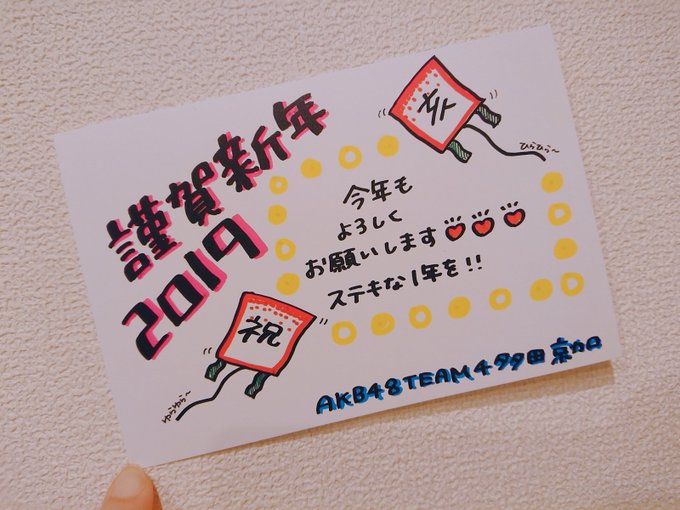 謹賀新年
2019
亥
ひらひら～
今年も
よろしく
お願いします
ステキな1年を!!
祝
ゆらゆら～
AKB48 TEAM4 多田 京加